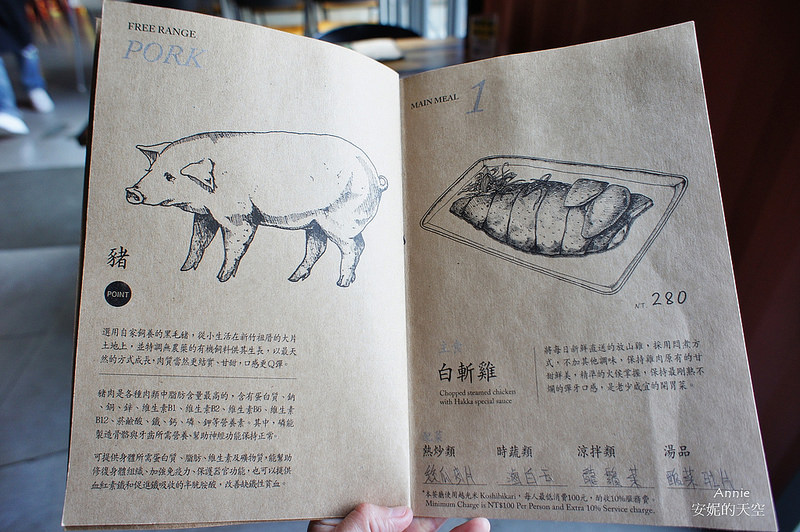 FREE RANGE
PORK
豬
POINT
選用自家飼養的黑毛豬，從小生活在新竹祖厝的大片
土地上，並特調無農藥的有機飼料供其生長，以最天
然的方式成長，肉質當然更結實、甘甜，口感更Q彈。
豬肉是各種肉類中脂肪含量最高的，含有蛋白質、鈉
、銅、鋅、維生素B1、維生素B2、維生素B6、維生素
B12、菸鹼酸、鐵、鈣、磷、鉀等營養素。其中，磷能
製造骨骼與牙齒所需營養、幫助神經功能保持正常。
可提供身體所需蛋白質、脂肪、維生素及礦物質，能幫助
修復身體組織、加強免疫力、保護器官功能，也可以提供
血紅素鐵和促進鐵吸收的半胱胺酸，改善缺鐵性貧血。
MAIN MEAL 1
NT. 280
主食
白斬雞
Chopped steamed chicken
with Hakka special sauce
將每日新鮮直送的放山雞，採用悶煮方
式，不加其他調味，保持雞肉原有的甘
甜鮮美，精準的火候掌握，保持最剛熟不
爛的彈牙口感，是老少咸宜的開胃菜。
配菜
熱炒類 時蔬類 涼拌類 湯品
絲瓜肉片 滷白玉
*本餐廳使用越光米 Koshihikari，每人最低消費100元，酌收10%服務費。
Minimum Charge is NT$100 Per Person and Extra 10% Service charge.
Annie
安妮的天空